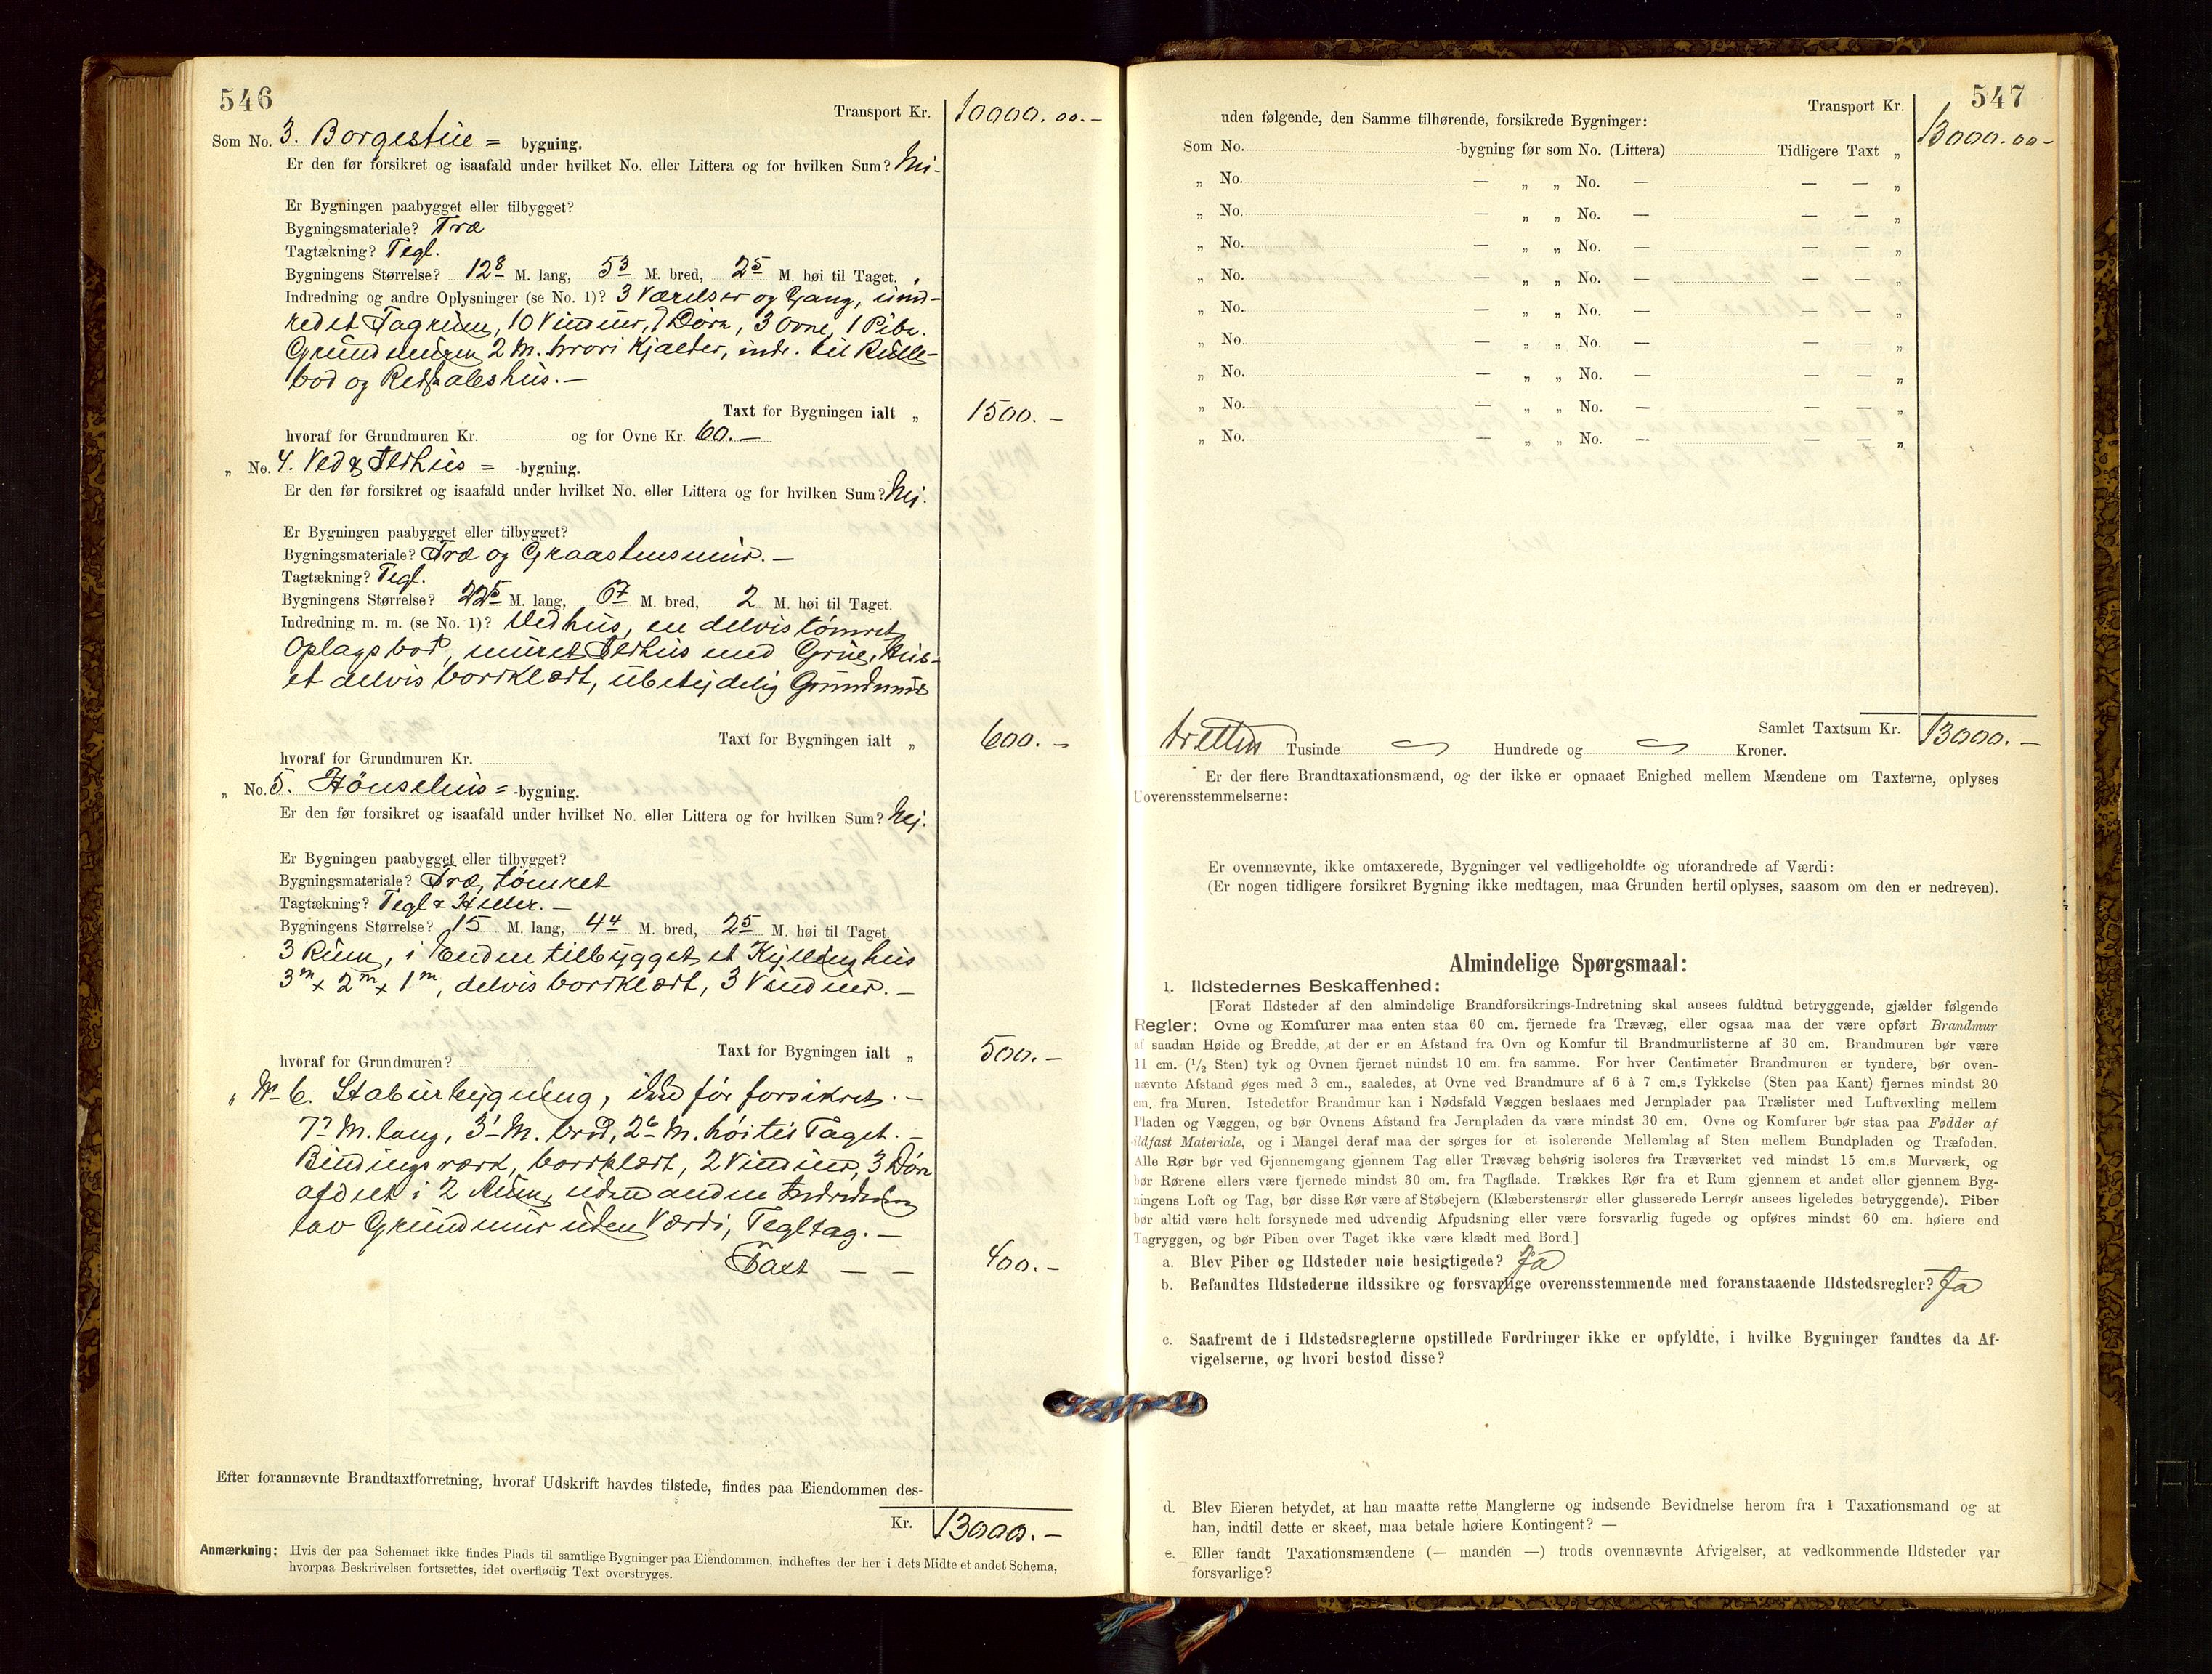 546
Transport Kr. 10000.00.-
Som No. 3. Borgestue = bygning.
Er den før forsikret og isaafald under hvilket No. eller Littera og for hvilken Sum? Nei-
Er Bygningen paabygget eller tilbygget?
Bygningsmateriale? Træ
Tagtækning? Tegl.
Bygningens Størrelse? 12 8 M. lang, 5 3 M. bred, 2 5 M. høi til Taget.
Indredning og andre Oplysninger (se No. 1)? 3 Værelser og Gang, uind-
redet Tagrum, 10 Vinduer, 7 Døre, 3 Ovne, 1 Pibe.
Grundmuren 2 M. hvori Kjælder, indr. til Rulle-
bod og Redskabshus.-
Taxt for Bygningen ialt „ 1500.-
hvoraf for Grundmuren Kr. og for Ovne Kr. 60.-
„ No. 4. Ved & Ildhus = -bygning.
Er den før forsikret og isaafald under hvilket No. eller Littera og for hvilken Sum? Nei.
Er Bygningen paabygget eller tilbygget?
Bygningsmateriale? Træ og Graastensmur.-
Tagtækning? Tegl.
Bygningens Størrelse? 22 5 M. lang, 6 7 M. bred, 2 M. høi til Taget.
Indredning m. m. (se No. 1)? Vedhus, en delvis tømret
Oplagsbod, muret Ildhus med Grue, Hus-
et delvis bordklædt, ubetydelig Grundmur
Taxt for Bygningen ialt „ 600.-
hvoraf for Grundmuren Kr.
„ No. 5. Hønsehus = -bygning.
Er den før forsikret og isaafald under hvilket No. eller Littera og for hvilken Sum? Nej.
Er Bygningen paabygget eller tilbygget?
Bygningsmateriale? Træ, tømret
Tagtækning? Tegl & Heller.-
Bygningens Størrelse? 15 M. lang, 4 4 M. bred, 2 5 M. høi til Taget.
3 Rum, i Enden tilbygget et Kyllinghus
3m x 2m x 1m, delvis bordklædt, 3 Vinduer.-
Taxt for Bygningen ialt „ 500.-
hvoraf for Grundmuren?
„ No 6. Staburbygning, ikke før forsikret.-
7 7 M. lang, 3 1 M. bred, 2 6 M. høi til Taget.-
Bindingsværk, bordklædt, 2 Vinduer, 3 Døre
afdelt i 2 Rum, uden anden Indredning
lav Grundmur uden Værdi, Tegltag.-
Taxt - - 400.-
Efter forannævnte Brandtaxtforretning, hvoraf Udskrift havdes tilstede, findes paa Eiendommen des-
Kr. 13000.-
Anmærkning: Hvis der paa Schemaet ikke findes Plads til samtlige Bygninger paa Eiendommen, indheftes der her i dets Midte et andet Schema,
hvorpaa Beskrivelsen fortsættes, idet overflødig Text overstryges.
547
Transport Kr. 13000.00-
uden følgende, den Samme tilhørende, forsikrede Bygninger:
Som No. -bygning før som No. (Littera) Tidligere Taxt „
„ No. — „ „ No. — — — „
„ No. — „ „ No. — — — „
„ No. — „ „ No. — — — „
„ No. — „ „ No. — — — „
„ No. — „ „ No. — — — „
„ No. — „ „ No. — — — „
„ No. — „ „ No. — — — „
„ No. — „ „ No. — — — „
„ No. — „ „ No. — — — „
Samlet Taxtsum Kr. 13000.-
tretten Tusinde Hundrede og Kroner.
Er der flere Brandtaxationsmænd, og der ikke er opnaaet Enighed mellem Mændene om Taxterne, oplyses
Uoverensstemmelserne:
Er ovennævnte, ikke omtaxerede, Bygninger vel vedligeholdte og uforandrede af Værdi:
(Er nogen tidligere forsikret Bygning ikke medtagen, maa Grunden hertil oplyses, saasom om den er nedreven).
Almindelige Spørgsmaal:
1. Ildstedernes Beskaffenhed:
[Forat Ildsteder af den almindelige Brandforsikrings-Indretning skal ansees fuldtud betryggende, gjælder følgende
Regler: Ovne og Komfurer maa enten staa 60 cm. fjernede fra Trævæg, eller ogsaa maa der være opført Brandmur
af saadan Høide og Bredde, at der er en Afstand fra Ovn og Komfur til Brandmurlisterne af 30 cm. Brandmuren bør være
11 cm. (1/2 Sten) tyk og Ovnen fjernet mindst 10 cm. fra samme. For hver Centimeter Brandmuren er tyndere, bør oven-
nævnte Afstand øges med 3 cm., saaledes, at Ovne ved Brandmure af 6 à 7 cm.s Tykkelse (Sten paa Kant) fjernes mindst 20
cm. fra Muren. Istedetfor Brandmur kan i Nødsfald Væggen beslaaes med Jernplader paa Trælister med Luftvexling mellem
Pladen og Væggen, og bør Ovnens Afstand fra Jernpladen da være mindst 30 cm. Ovne og Komfurer bør staa paa Fødder af
ildfast Materiale, og i Mangel deraf maa der sørges for et isolerende Mellemlag af Sten mellem Bundpladen og Træfoden.
Alle Rør bør ved Gjennemgang gjennem Tag eller Trævæg behørig isoleres fra Træværket ved mindst 15 cm.s Murværk, og
bør Rørene ellers være fjernede mindst 30 cm. fra Tagflade. Trækkes Rør fra et Rum gjennem et andet eller gjennem Byg-
ningens Loft og Tag, bør disse Rør være af Støbejern (Klæberstensrør eller glasserede Lerrør ansees ligeledes betryggende). Piber
bør altid være helt forsynede med udvendig Afpudsning eller være forsvarlig fugede og opføres mindst 60 cm. høiere end
Tagryggen, og bør Piben over Taget ikke være klædt med Bord.]
a. Blev Piber og Ildsteder nøie besigtigede? Ja
b. Befandtes Ildstederne ildssikre og forsvarlige overensstemmende med foranstaaende Ildstedsregler? Ja
c. Saafremt de i Ildstedsreglerne opstillede Fordringer ikke er opfyldte, i hvilke Bygninger fandtes da Af-
vigelserne, og hvori bestod disse?
d. Blev Eieren betydet, at han maatte rette Manglerne og indsende Bevidnelse herom fra 1 Taxationsmand og at
han, indtil dette er skeet, maa betale høiere Kontingent? —
e. Eller fandt Taxationsmændene (— manden —) trods ovennævnte Afvigelser, at vedkommende Ildsteder var
forsvarlige?